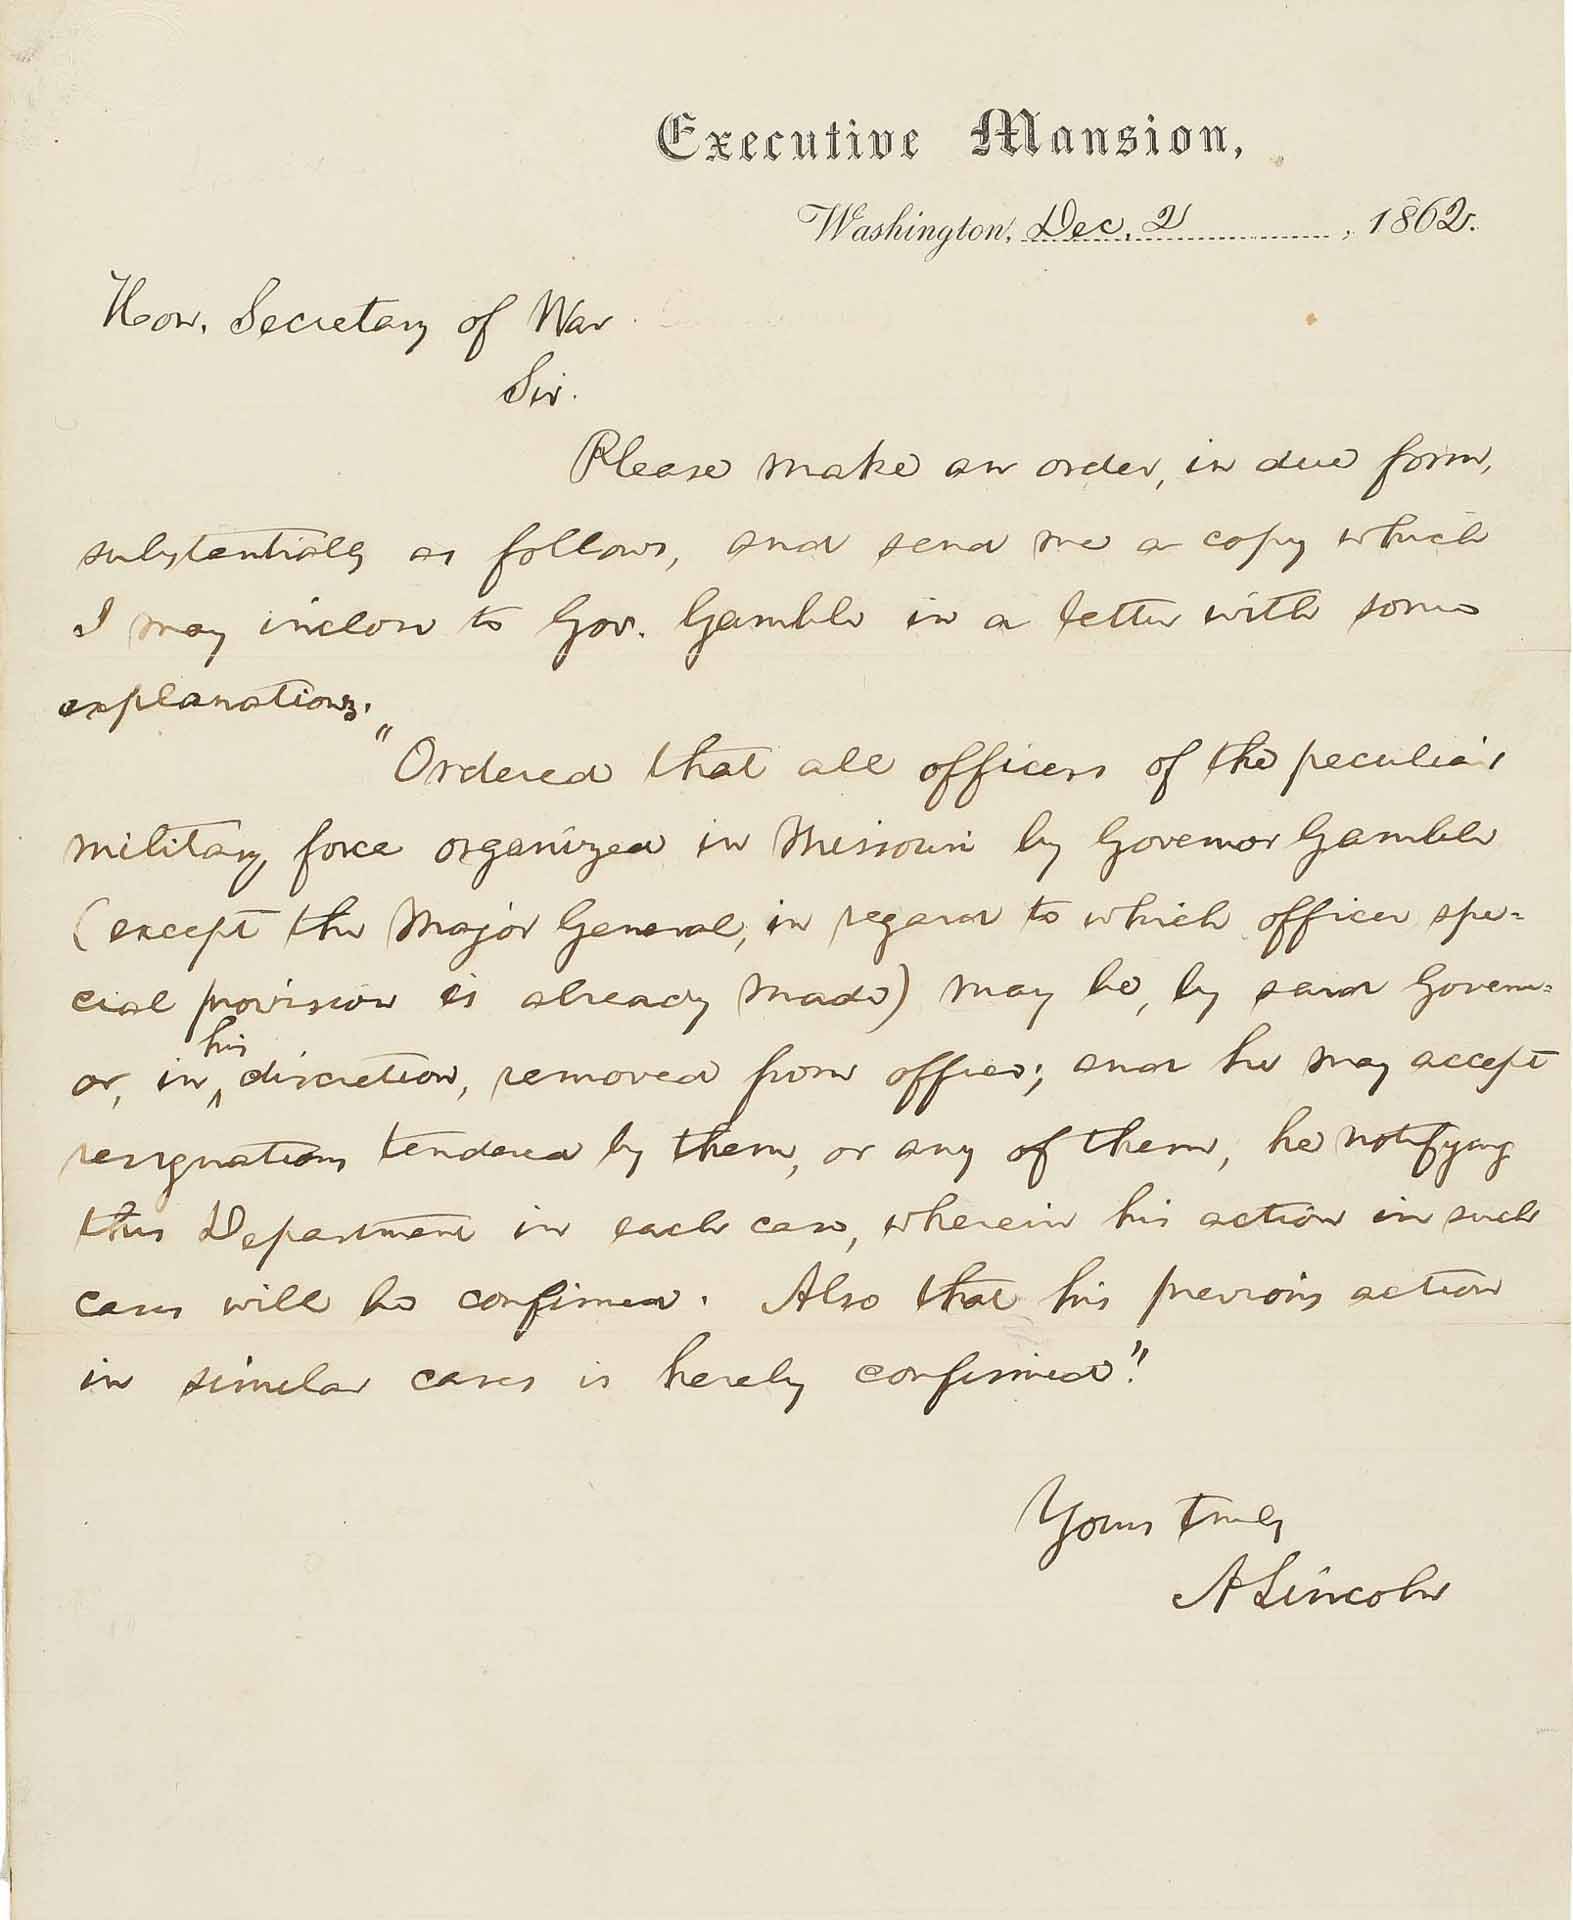 Executive Mansion,
Washington, Dec. 2, 1862.
Hon. Secretary of War
Sir.
Please make an order, in due form,
substantially as follows, and send me a copy which
I may inclose to Gov. Gamble in a letter with some
explanations.
"Ordered that all officers of the peculiar
military force organized in Missouri by Governor Gamble
(except the Major General, in regard to which officer spe=
cial provision is already made) may be, by said Govern=
or, in his discretion, removed from office; and he may accept
resignations tendered by them, or any of them, he notifying
this Department in each case, wherein his action in such
cases will be confirmed. Also that his previous action
in similar cases is hereby confirmed".
Yours truly
A Lincoln